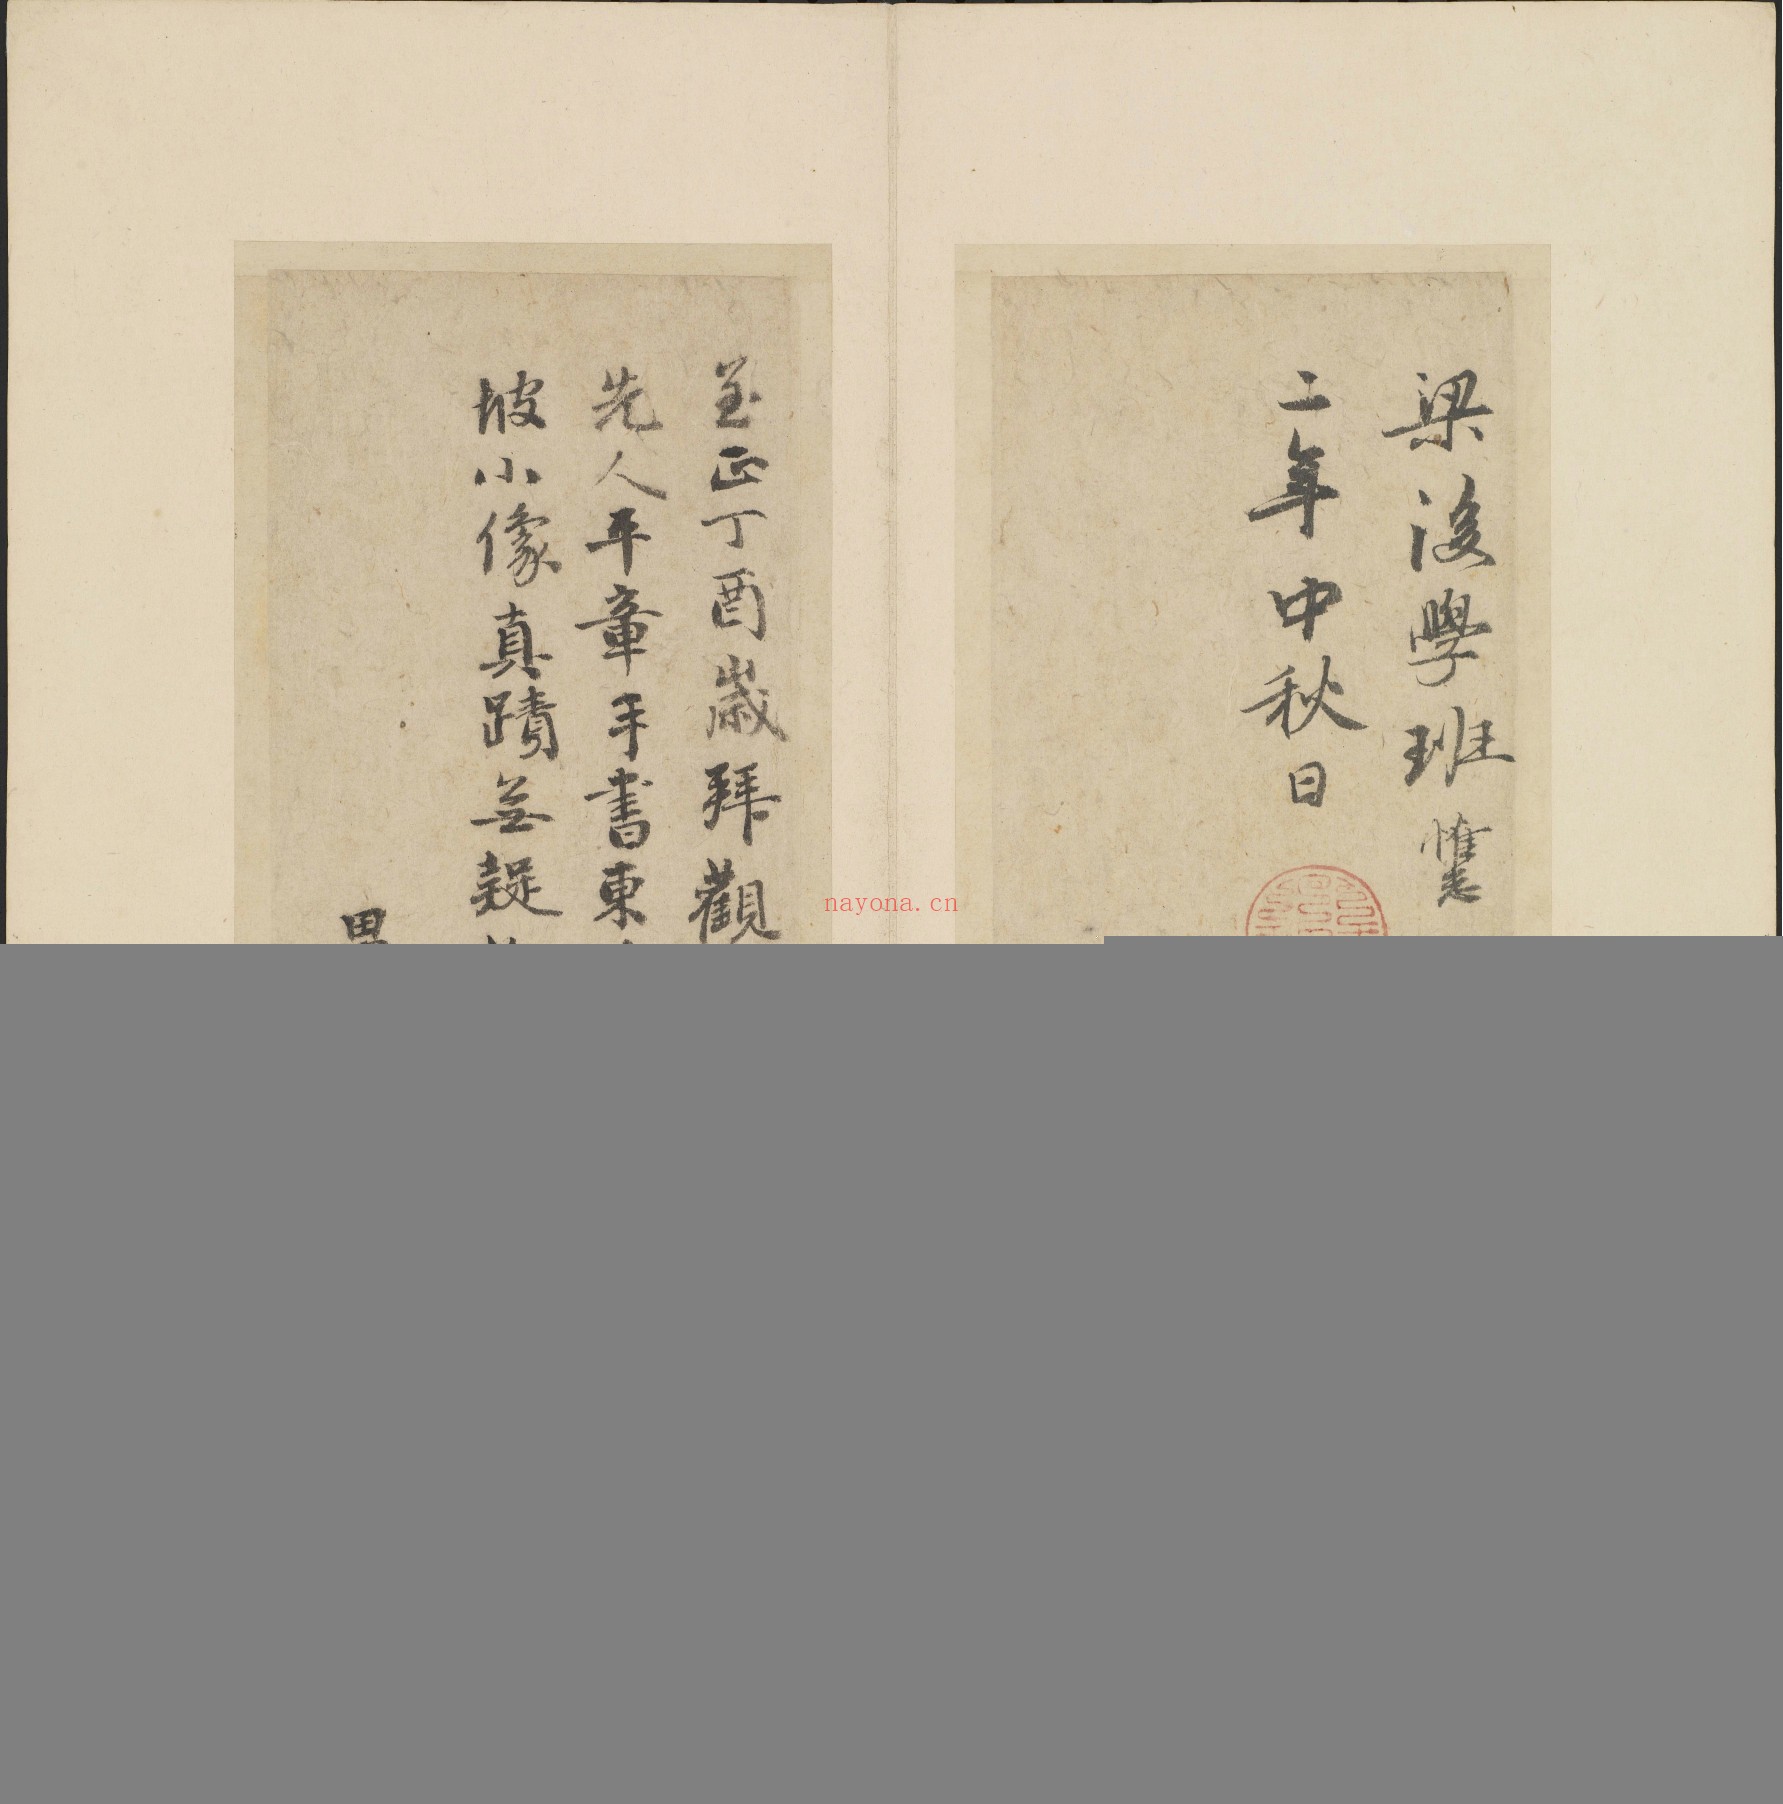 梁後學班惟志
二年中秋日
至正丁酉歲拜觀
先人平章手書東
坡小像真蹟無疑
男
nayona.cn